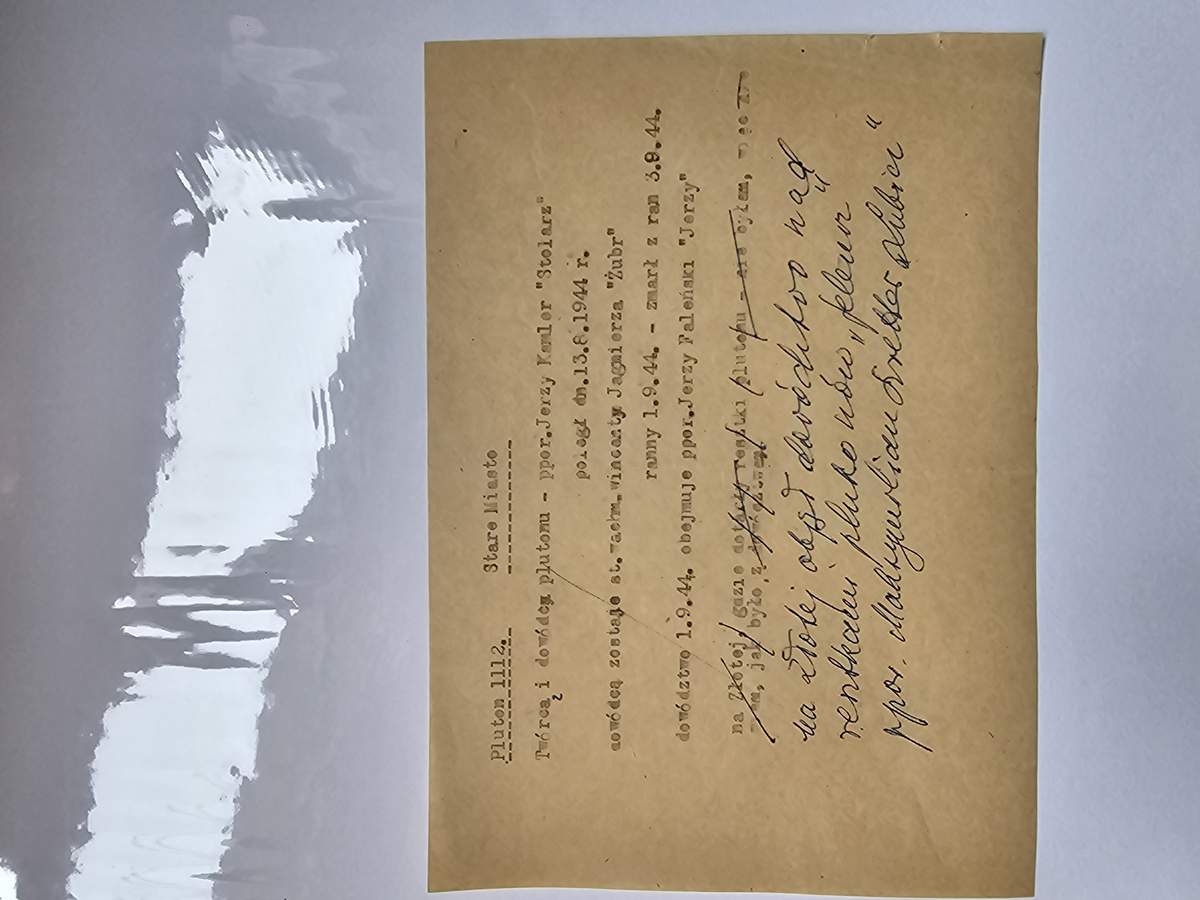 Pluton 1112. Stare Miasto
Twórcą i dowódcą plutonu - ppor.Jerzy Kamler "Stolarz"
poległ dn.13.8.1944 r.
dowódcą zostaje st.wachm.wincenty Jagmierza "Żubr"
ranny 1.9.44. - zmarł z ran 3.9.44.
dowództwo 1.9.44. obejmuje ppor.Jerzy Paleński "Jerzy"
na Złotej, gdzie dotarły resztki plutonu - nie byłam, więc nie
wiem, jak było z dowództwem.
na Złotej objął dowództwo nad
resztkami plutonów „Jelenia"
ppor. Maksymilian "Lubicz"